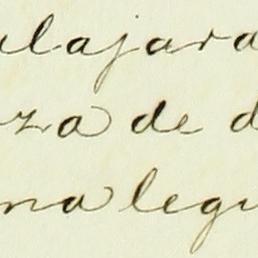 alajara
za de d
na legu